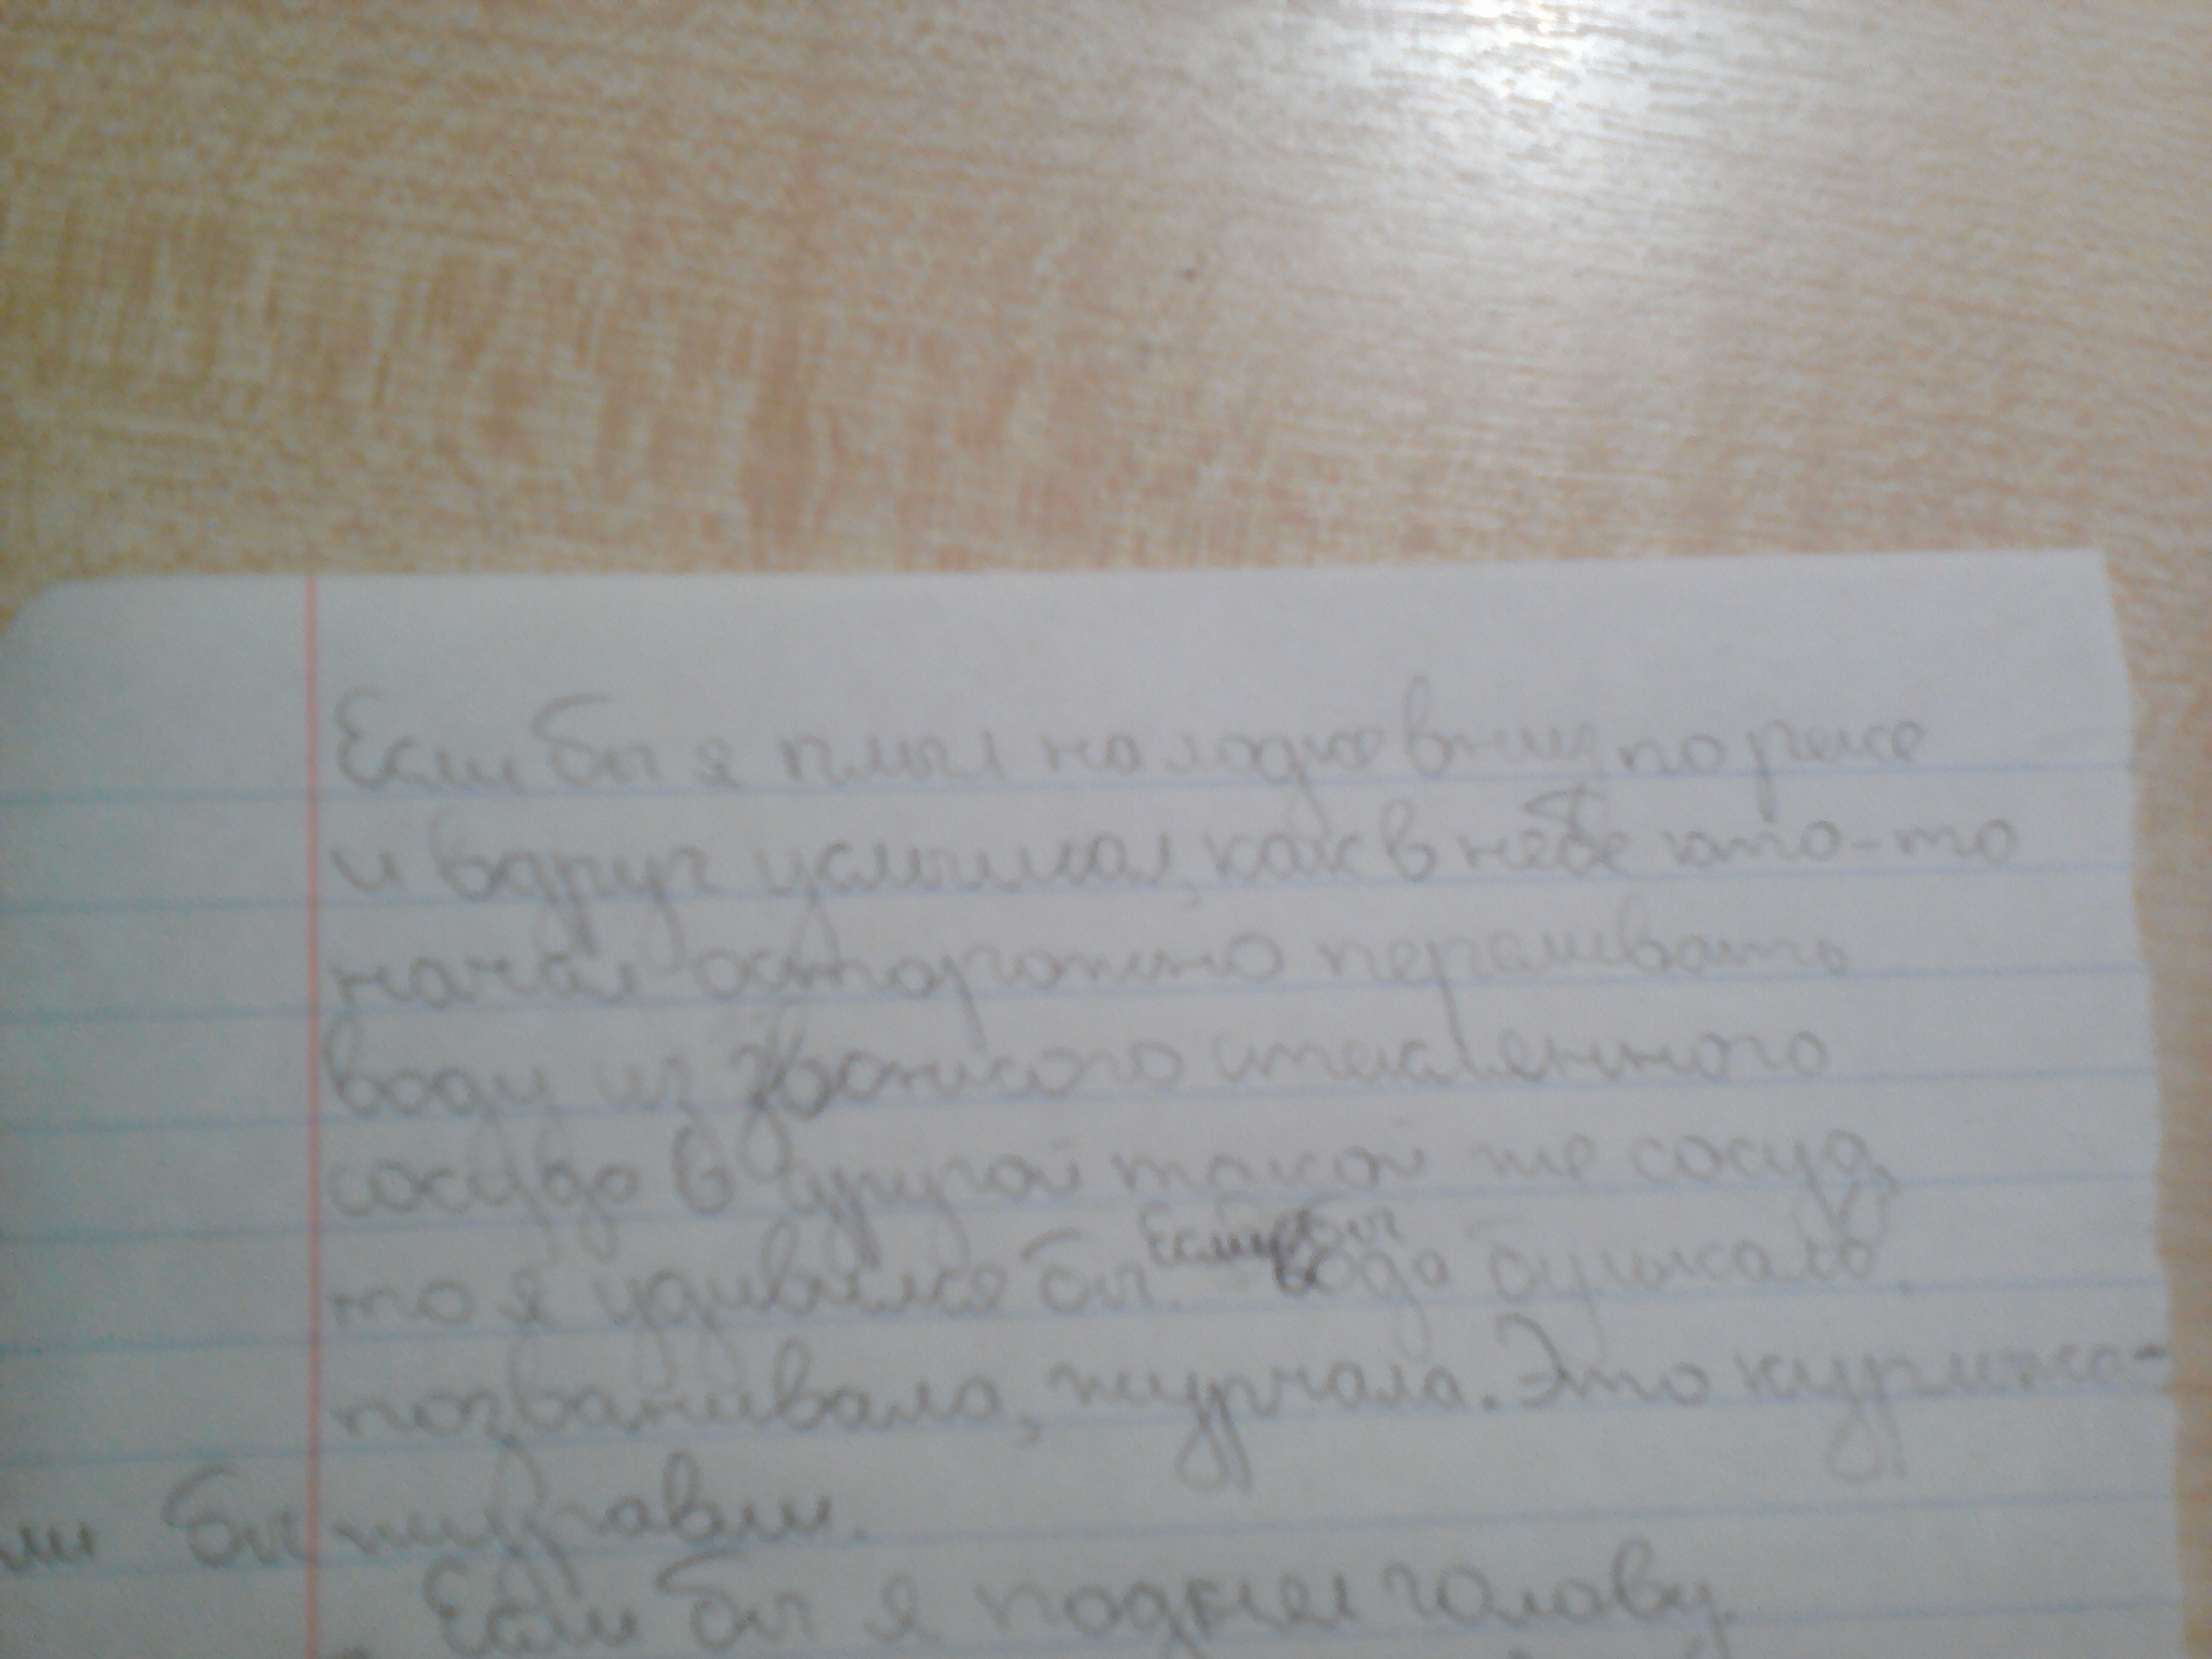 Если бы я плыл на лодке вниз по реке
и вдруг услышал, как в небе кто-то
начал осторожно переливать
воду из звонкого стеклянного
сосуда в другой такой же сосуд,
то я удивился бы. Если бы вода булькала,
позванивала, журчала. Это курлыка-
ли бы журавли.
Если бы я поднял голову,